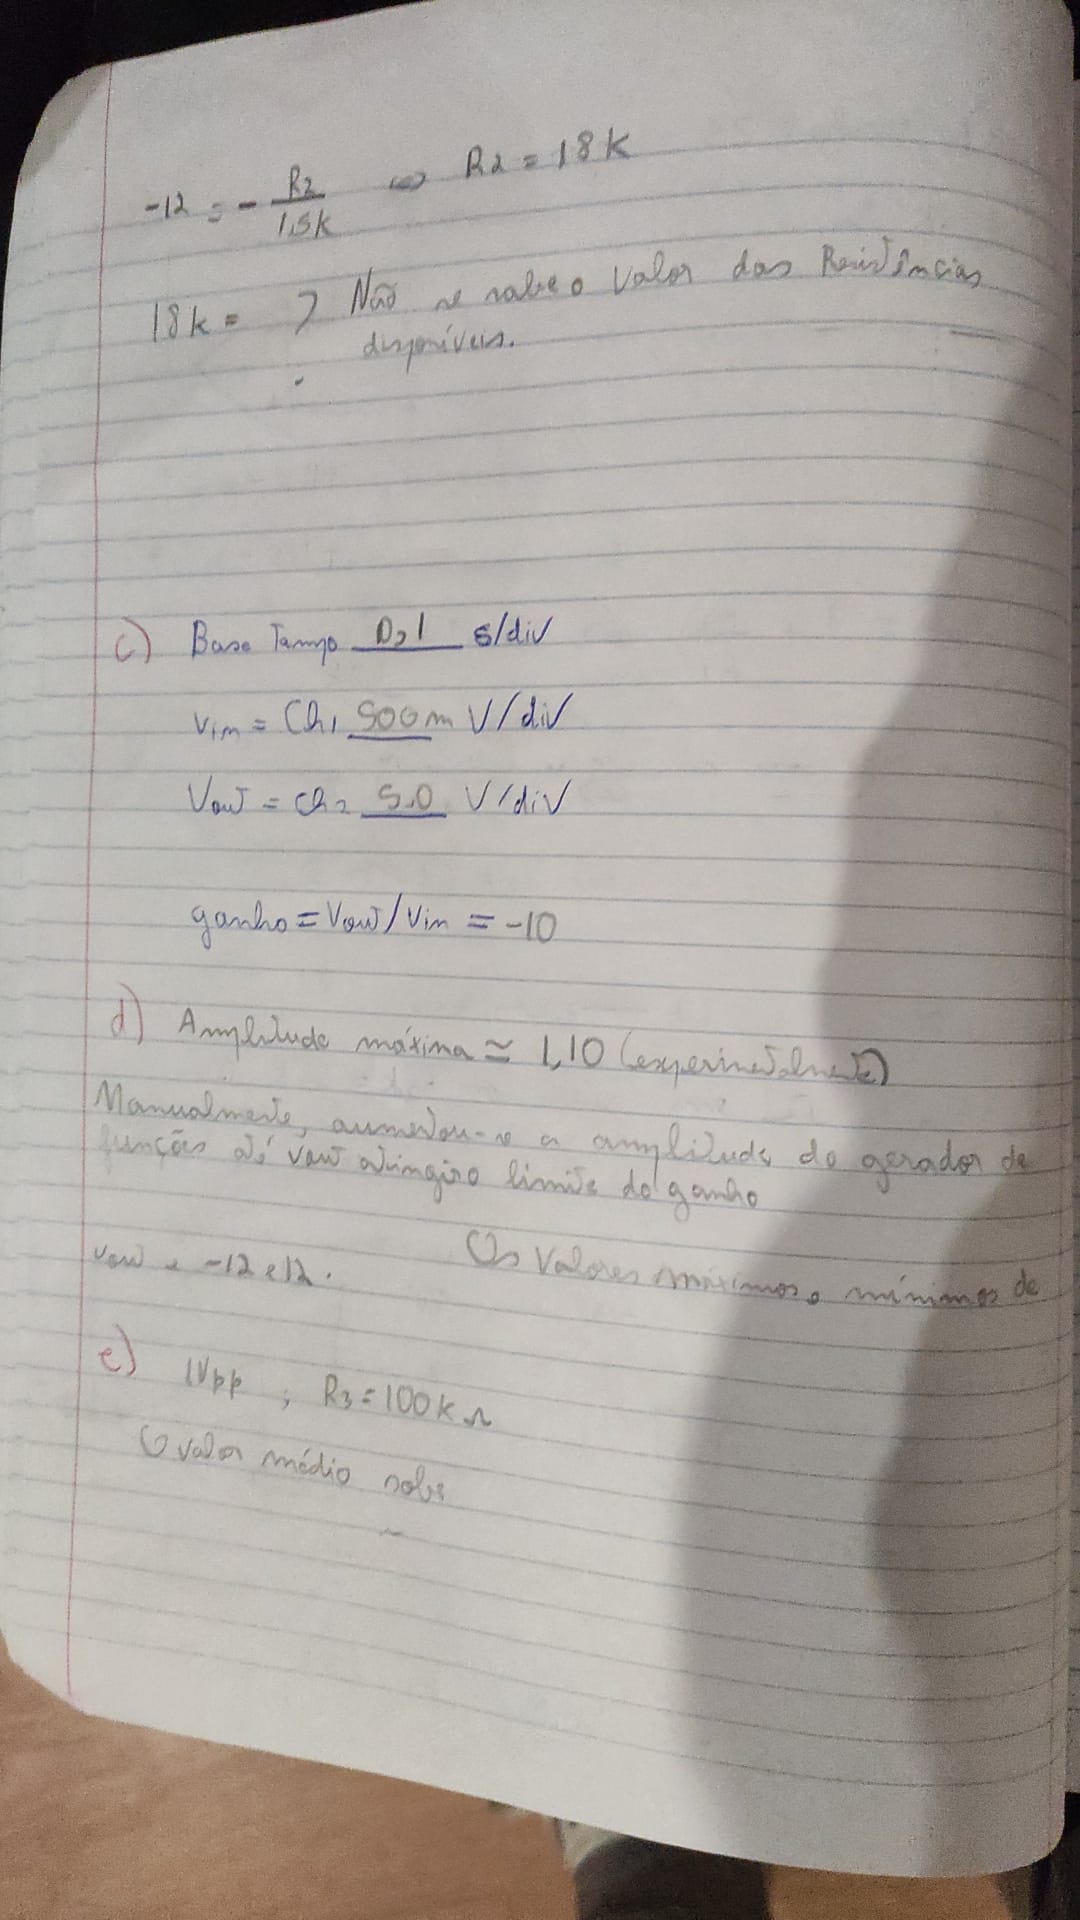 -12 = - R2/1,5K ⇔ R2 = 18K
18K = ? Não se sabe o Valor das Resistências
disponíveis.
c) Base Tempo 0,1 s/div
Vin = Ch1 500m V/div
Vout = Ch2 5.0 V/div
ganho = Vout/Vin = -10
d) Amplitude máxima ≃ 1,10 (experimentalmente)
Manualmente, aumentou-se a amplitude do gerador de
funções até vout atingir o limite do ganho
Os Valores máximos e mínimos de
vout e -12 e 12.
e) 1Vpp ; R3 = 100K Ω
O valor médio sobe